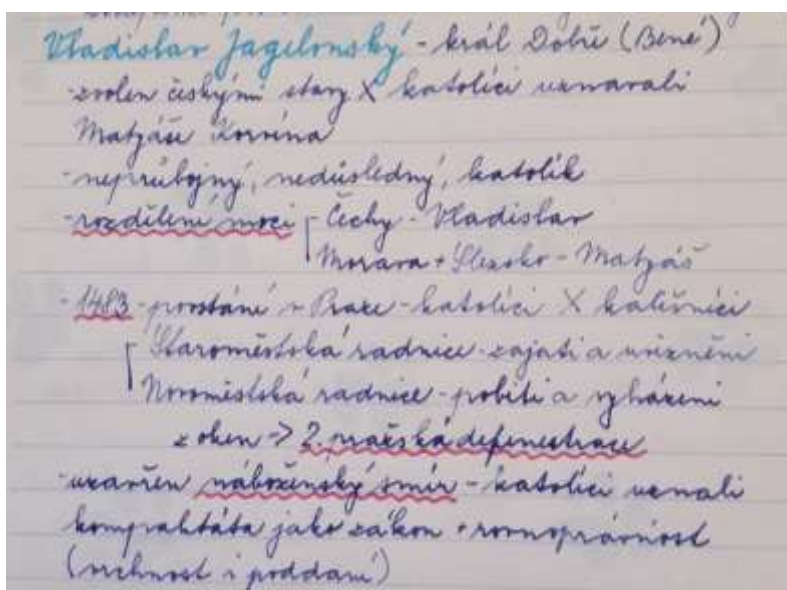 Vladislav Jagelonský - král Dobře (Bené)
- zvolen českými stavy X katolíci uznavali
Matyáše Korvína
- neprůbojný, nedůsledný, katolík
- rozdělení moci Čechy - Vladislav
Morava + Slezsko - Matyáš
- 1483 - povstání v Praze - katolíci X kališníci
Staroměstská radnice - zajati a uvězněni
Novoměstská radnice - pobiti a vyházeni
z oken -> 2. pražská defenestrace
- uzavřen náboženský smír - katolíci uznali
kompaktáta jako zákon + rovnoprávnost
(vrchnost i poddaní)